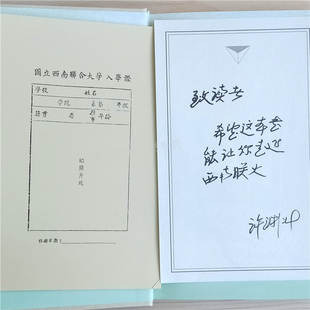 國立西南聯合大學入學證
學號 姓名
學院 系 年級
籍貫 省 縣市 年齡
粘照片處
致读者
希望这本书
能让你走近
西南联大
许渊冲